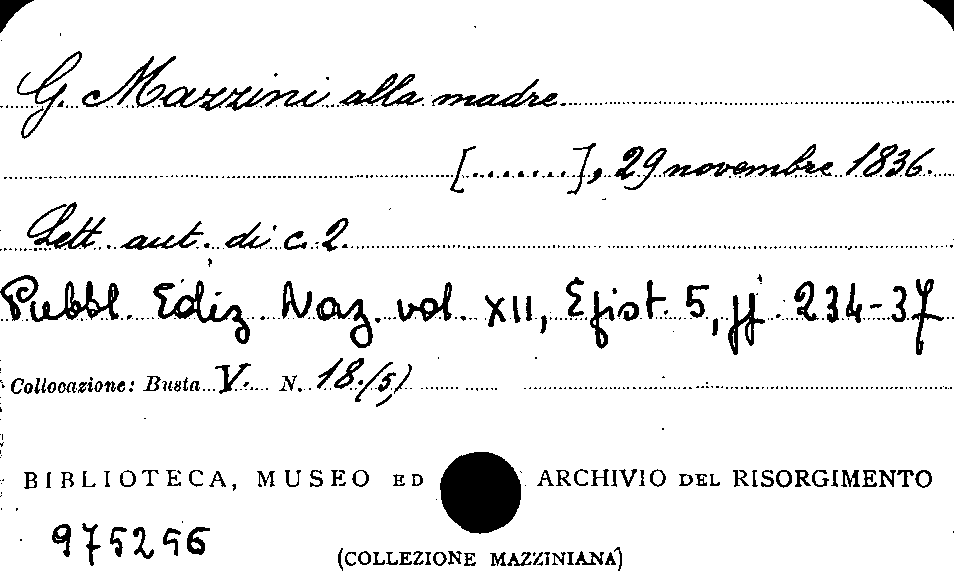 G. Mazzini alla madre.
[........], 29 novembre 1836.
Lett. aut. di c. 2.
Pubbl. Ediz. Naz. vol. XII, Epist. 5, pp. 234-37
Collocazione: Busta V. N. 18.(5)
BIBLIOTECA, MUSEO ED ARCHIVIO DEL RISORGIMENTO
975256
(COLLEZIONE MAZZINIANA)